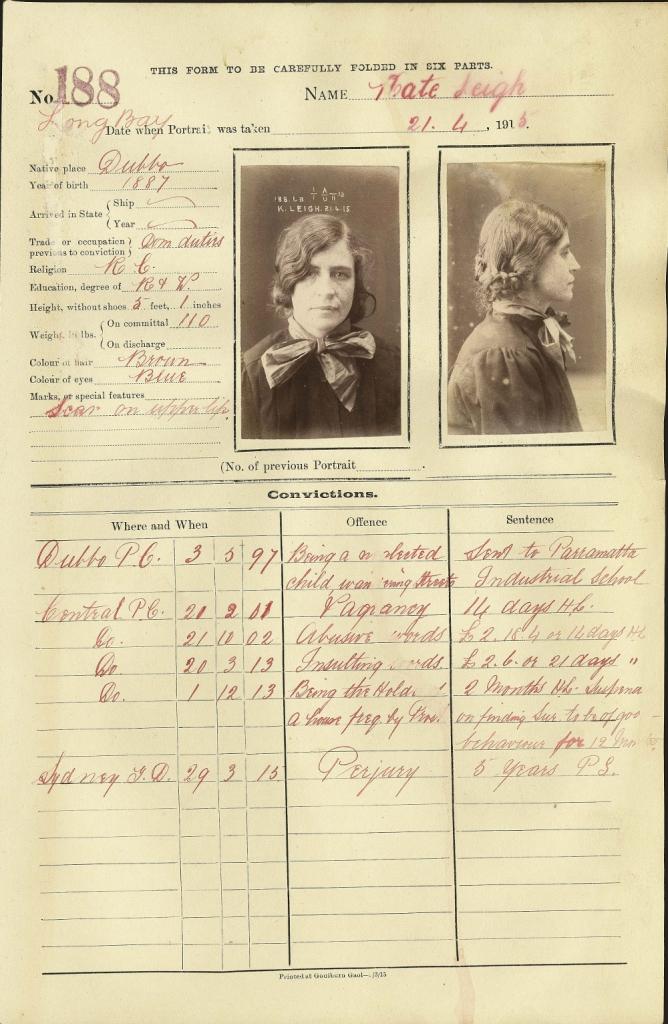 THIS FORM TO BE CAREFULLY FOLDED IN SIX PARTS.
No. 188
NAME Kate Leigh
Long Bay
Date when Portrait was taken 21. 4, 1915.
Native place Dubbo
Year of birth 1887
Arrived in State { Ship
Year
Trade or occupation previous to conviction } Dom duties
Religion R. C.
Education, degree of R & W.
Height, without shoes 5 feet, 1 inches
Weight in lbs. { On committal 110
On discharge
Colour of hair Brown
Colour of eyes Blue
Marks, or special features
Scar on upper lip
188. LB
K. LEIGH. 21.4.15
(No. of previous Portrait
Convictions.
Where and When Offence Sentence
Dubbo P.C. 3 5 97 Being a n lected Sent to Parramatta
child, wan ring streets Industrial School
Central P.C. 21 2 01 Vagrancy 14 days HL.
Do. 21 10 02 Abusive words £2. 18.4 or 14 days HL
Do 20 3 13 Insulting words £2.6. or 21 days "
Do. 1 12 13 Being the Hold 2 Months HL. Suspen
a house freq. by Pros. on finding Sur. to be of goo
behaviour for 12 Mon
Sydney G.D. 29 3 15 Perjury 5 Years P.S.
Printed at Goulburn Gaol—.